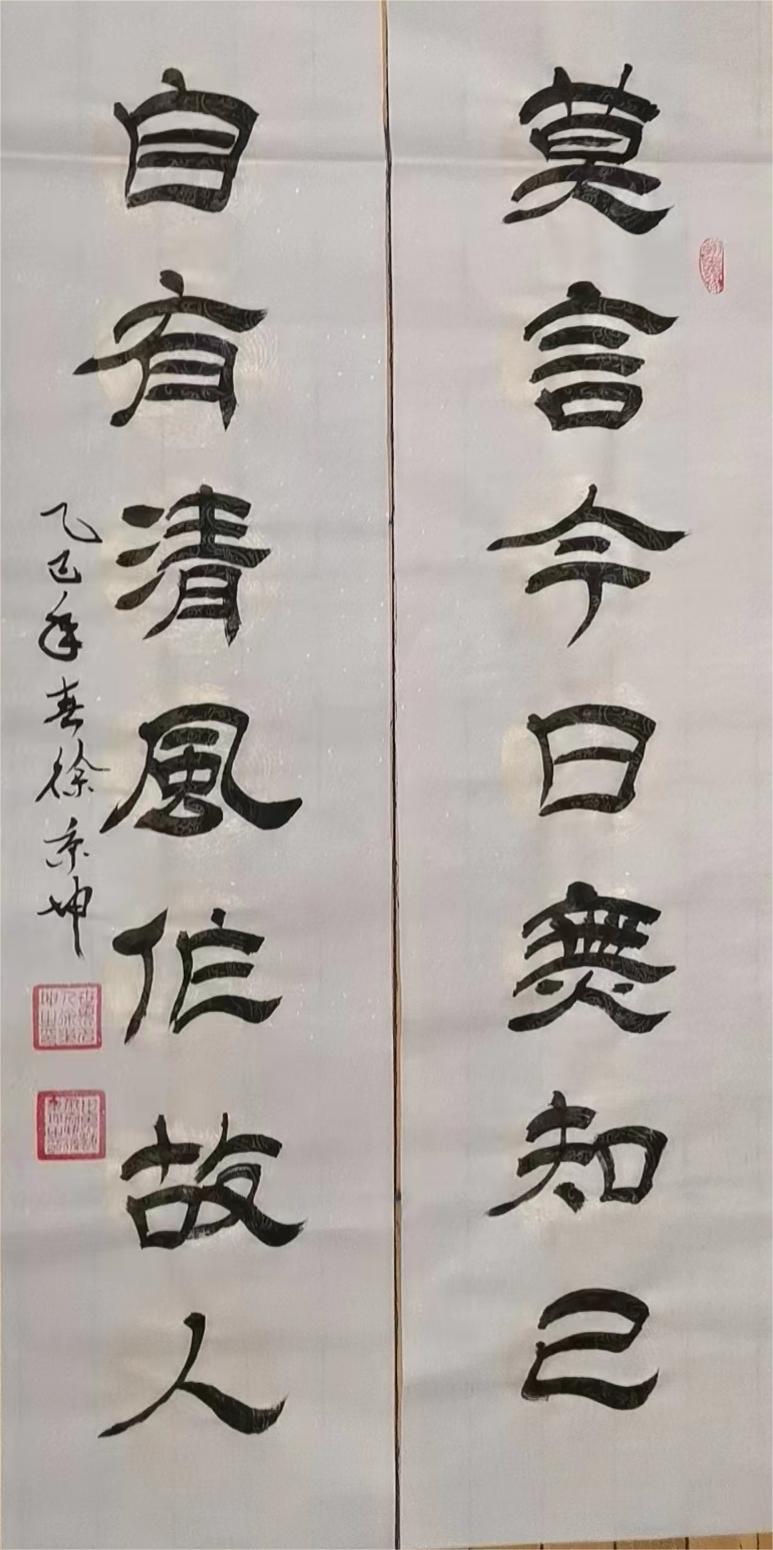 莫言今日無知己
自有清風作故人
乙巳年春徐京坤